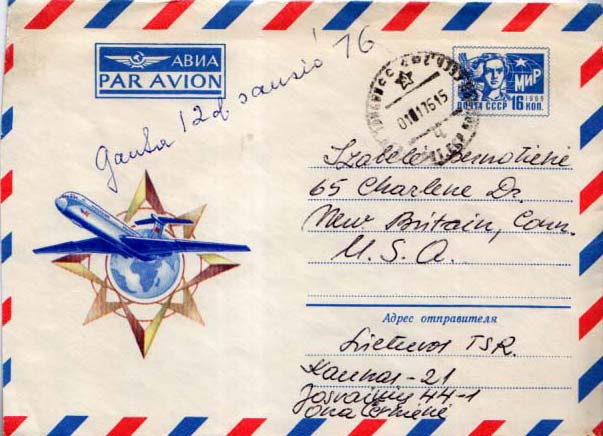 АВИА
PAR AVION
Gauta 12 d sausio 76
ПОЧТА СССР 16 КОП.
МИР
1966
010176 15
Izabelė Bernotienė
65 Charlene Dr.
New Britain, Conn.
U. S. A.
Адрес отправителя
Lietuvos TSR.
Kaunas-21
Josvainių 44-1
Ona